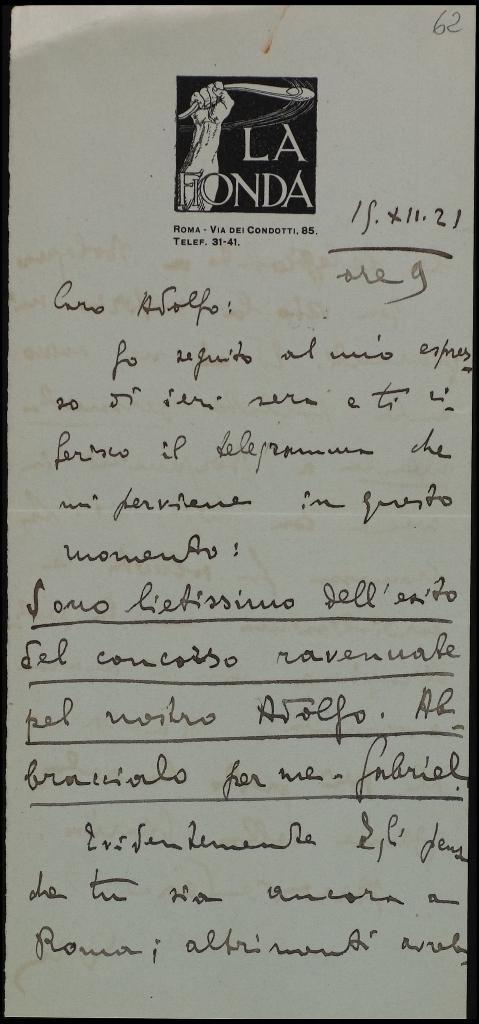 62
LA
FIONDA
ROMA - VIA DEI CONDOTTI, 85.
TELEF. 31-41.
15.XII.21
ore 9
Caro Adolfo:
fo seguito al mio espres-
so di ieri sera e ti ri-
ferisco il telegramma che
mi perviene in questo
momento:
Sono lietissimo dell'esito
del concorso ravennate
pel nostro Adolfo. Ab-
braccialo per me - Gabriel.
Evidentemente Egli pensa
che tu sia ancora a
Roma; altrimenti avreb-